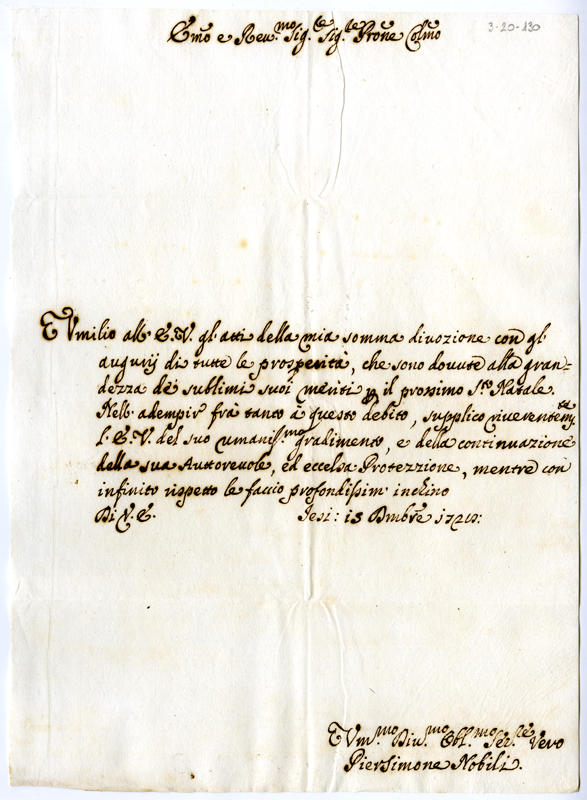 Emo e Reu.mo Sig.re Sig.re Prone Colmo
3-20-130
Umilio all' E.V. gl' atti della mia somma divozione con gl'
augurij di tutte le prosperità, che sono dovute alla gran=
dezza de sublimi suoi meriti p il prossimo S.to Natale.
Nell' adempir frà tanto à questo debito, supplico riverentem.te
l' E.V. del suo umanis.mo gradimento, e della continuazione
della sua Auttorevole, ed eccelsa Protezzione, mentre con
infinito rispetto le faccio profondissim' inchino
Di V.E. Jesi: 15 Dmbre
Um.mo Diu.mo Obl.mo Ser.re Vero
Piersimone Nobili.